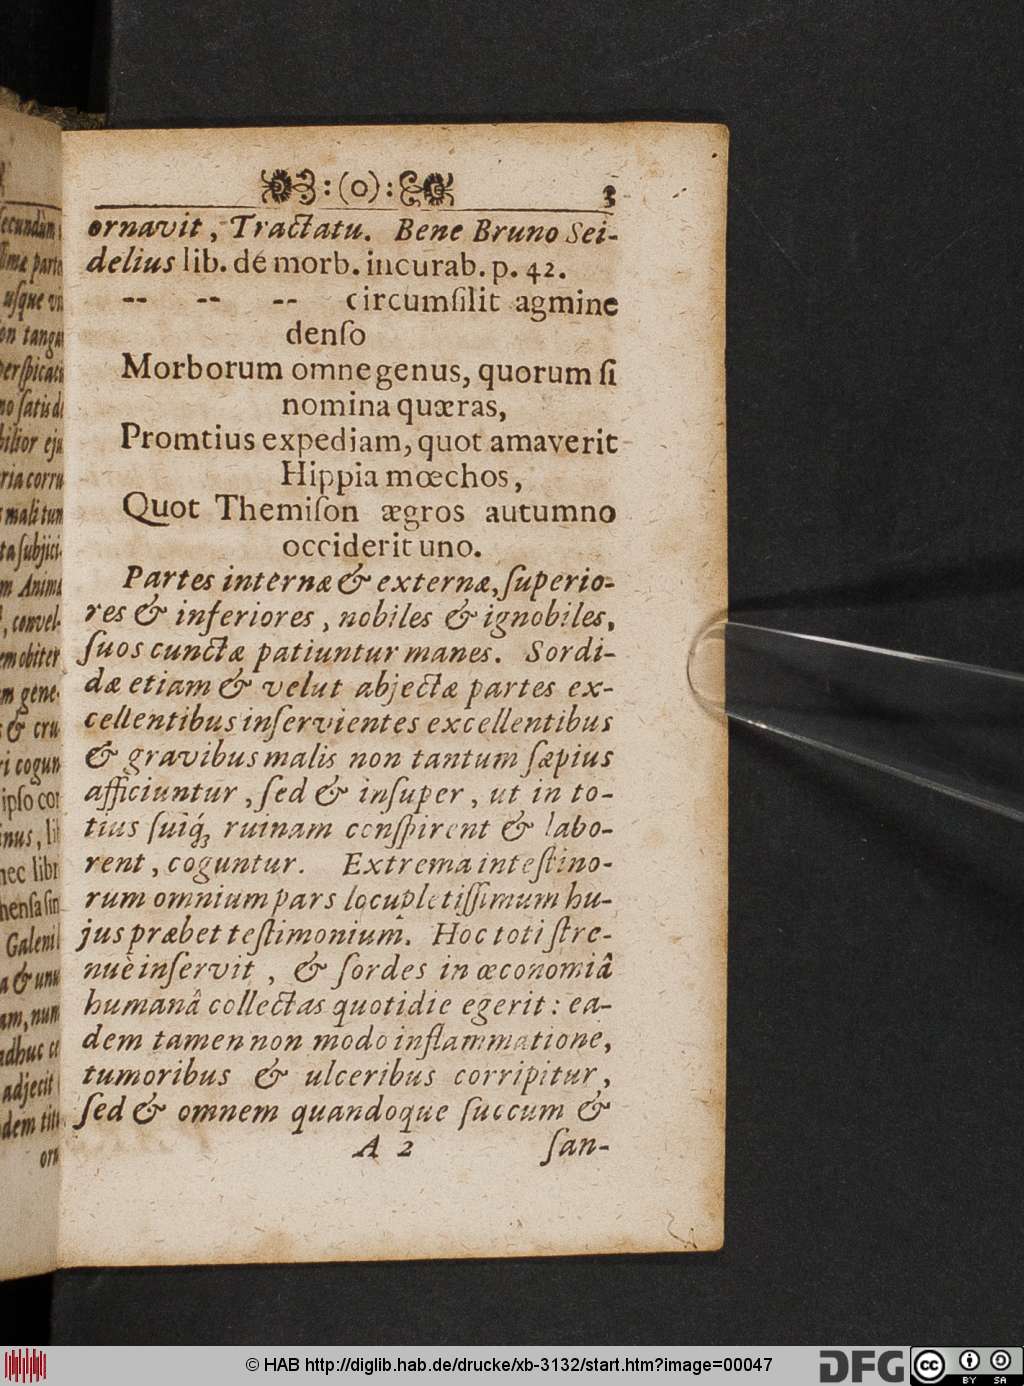 :(o): 3
ornavit, Tractatu. Bene Bruno Sei-
delius lib. de morb. incurab. p. 42.
-- -- -- circumſilit agmine
denſo
Morborum omne genus, quorum ſi
nomina quæras,
Promtius expediam, quot amaverit
Hippia mœchos,
Quot Themiſon ægros autumno
occiderit uno.
Partes internæ & externæ, ſuperio-
res & inferiores, nobiles & ignobiles,
ſuos cunctæ patiuntur manes. Sordi-
dæ etiam & velut abjectæ partes ex-
cellentibus inſervientes excellentibus
& gravibus malis non tantum ſæpius
afficiuntur, ſed & inſuper, ut in to-
tius ſuiq́ꝫ ruinam conſpirent & labo-
rent, coguntur. Extrema inteſtino-
rum omnium pars locupletiſſimum hu-
jus præbet teſtimonium. Hoc toti ſtre-
nuè inſervit, & ſordes in œconomiâ
humanâ collectas quotidie egerit: ea-
dem tamen non modo inflammatione,
tumoribus & ulceribus corripitur,
ſed & omnem quandoque ſuccum &
A 2 ſan-
© HAB http://diglib.hab.de/drucke/xb-3132/start.htm?image=00047
DFG cc BY SA